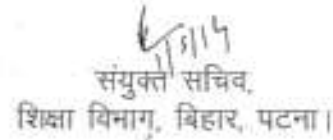 संयुक्त सचिव,
शिक्षा विभाग, बिहार, पटना।